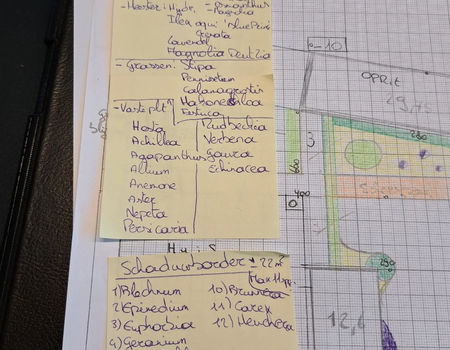 - Heester: Hydr. - Osmanthus
- Magnolia
Ilex aqui 'blue Prin
Crenata
Lavendel
Magnolia Deutzia
- Grassen: Stipa
Pennisetum
Calamagrostis
Hakonechloa
Festuca
- Vaste plt
Hosta Rudbeckia
Achillea Verbena
Agapanthus Gaura
Allium Echinacea
Anemone
Aster
Nepeta
Persicaria
Schaduwborder ± 22 m²
(Max 11 sp.
1) Blechnum 10) Brunnera
2) Epimedium 11) Carex
3) Euphorbia 12) Heuchera
4) Geranium
-10
OPRIT
3
280
600
400
0
Huis
250
12,6